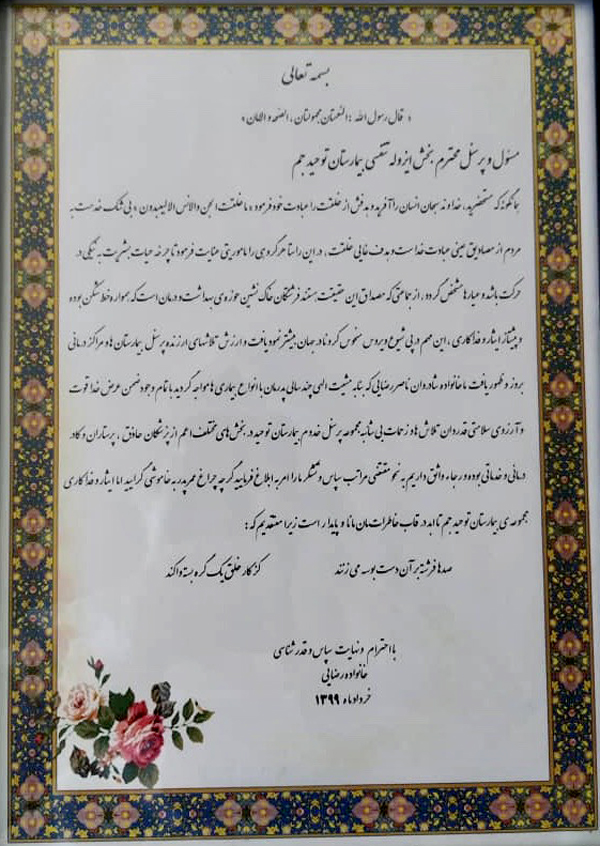 بسمه تعالی
« قال رسول الله : النعمتان مجهولتان ، الصحه و الامان »
مسئول و پرسنل محترم بخش ایزوله تنفسی بیمارستان توحید جم
همانگونه که مستحضرید، خداوند سبحان انسان را آفرید و هدفش از خلقت را عبادت خود فرمود « ما خلقت الجن والانس الا لیعبدون » بی شک خدمت به
مردم از مصادیق عینی عبادت خداست و هدف غایی خلقت ، در این راستا هر گروهی را ماموریتی عنایت فرمود تا چرخه حیات بشریت به نیکی در
حرکت باشد و عیارها مشخص گردد ، از جماعتی که مصداق این حقیقت هستند فرشتگان خاک نشین حوزه ی بهداشت و درمان است که همواره خط شکن بوده
و پیشتاز ایثار و فداکاری ، این مهم در پی شیوع ویروس منحوس کرونا در جهان بیشتر نمود یافت و ارزش تلاشهای ارزنده پرسنل بیمارستان ها و مراکز درمانی
بروز و ظهور یافت ما خانواده شادروان ناصر رضایی که بنا به مشیت الهی چند سالی پدرمان با انواع بیماری ها مواجه گردید با تمام وجود ضمن عرض خدا قوت
و آرزوی سلامتی قدردان تلاش ها و زحمات بی شائبه مجموعه پرسنل خدوم بیمارستان توحید در بخش های مختلف اعم از پزشکان حاذق ، پرستاران و کادر
درمانی و خدماتی بوده و رجاء واثق داریم به نحو مقتضی مراتب سپاس و تشکر ما را امر به ابلاغ فرمایید گرچه چراغ عمر پدر به خاموشی گرایید اما ایثار و فداکاری
مجموعه ی بیمارستان توحید جم تا ابد در قاب خاطرات مان مانا و پایدار است زیرا معتقدیم که :
صدها فرشته بر آن دست بوسه می زنند کز کار خلق یک گره بسته وا کند
با احترام و نهایت سپاس و قدرشناسی
خانواده رضایی
خرداد ماه ۱۳۹۹